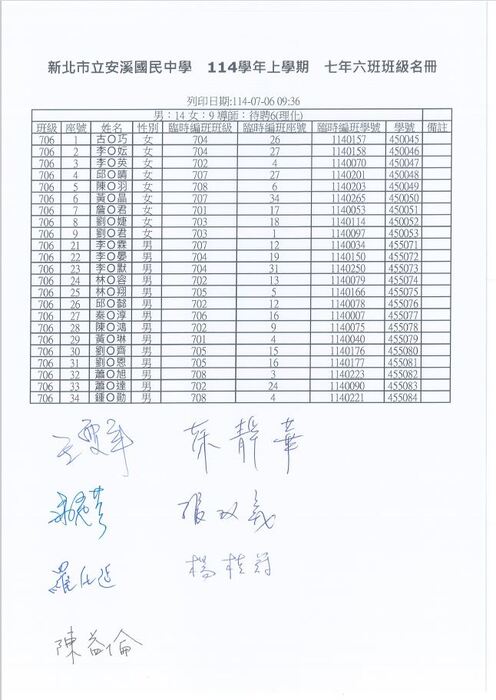 新北市立安溪國民中學 114學年上學期 七年六班班級名冊
列印日期:114-07-06 09:36
男：14 女：9 導師：待聘6(理化)
班級 座號 姓名 性別 臨時編班班級 臨時編班座號 臨時編班學號 學號 備註
706 1 古O巧 女 704 26 1140157 450045
706 2 李O妘 女 704 27 1140158 450046
706 3 李O英 女 702 4 1140070 450047
706 4 邱O晴 女 707 27 1140201 450048
706 5 陳O羽 女 708 6 1140203 450049
706 6 黃O晶 女 707 34 1140265 450050
706 7 詹O君 女 701 17 1140053 450051
706 8 劉O婕 女 703 18 1140114 450052
706 9 劉O君 女 703 1 1140097 450053
706 21 李O霖 男 707 12 1140034 455071
706 22 李O晏 男 704 19 1140150 455072
706 23 李O默 男 704 31 1140250 455073
706 24 林O容 男 702 13 1140079 455074
706 25 林O翔 男 705 5 1140166 455075
706 26 邱O懿 男 702 12 1140078 455076
706 27 秦O淳 男 706 16 1140007 455077
706 28 陳O鴻 男 702 9 1140075 455078
706 29 黃O琳 男 701 4 1140040 455079
706 30 劉O齊 男 705 15 1140176 455080
706 31 劉O恩 男 705 16 1140177 455081
706 32 蕭O旭 男 708 3 1140223 455082
706 33 蕭O達 男 702 24 1140090 455083
706 34 鍾O勛 男 708 4 1140221 455084
靜華
張双義
楊桂
羅仕
陳益倫